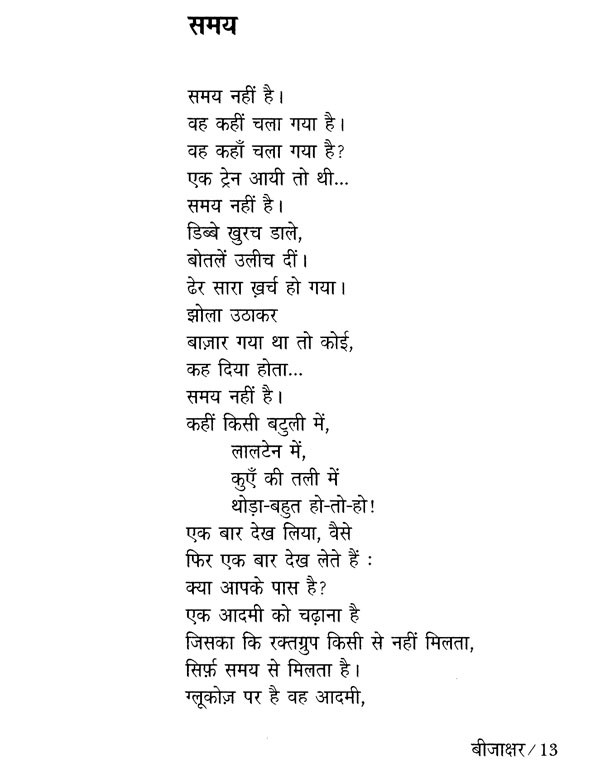 समय
समय नहीं है।
वह कहीं चला गया है।
वह कहाँ चला गया है?
एक ट्रेन आयी तो थी...
समय नहीं है।
डिब्बे खुरच डाले,
बोतलें उलीच दीं।
ढेर सारा ख़र्च हो गया।
झोला उठाकर
बाज़ार गया था तो कोई,
कह दिया होता...
समय नहीं है।
कहीं किसी बटुली में,
लालटेन में,
कुएँ की तली में
थोड़ा-बहुत हो-तो-हो!
एक बार देख लिया, वैसे
फिर एक बार देख लेते हैं :
क्या आपके पास है?
एक आदमी को चढ़ाना है
जिसका कि रक्तग्रुप किसी से नहीं मिलता,
सिर्फ़ समय से मिलता है।
ग्लूकोज़ पर है वह आदमी,
बीजाक्षर / 13